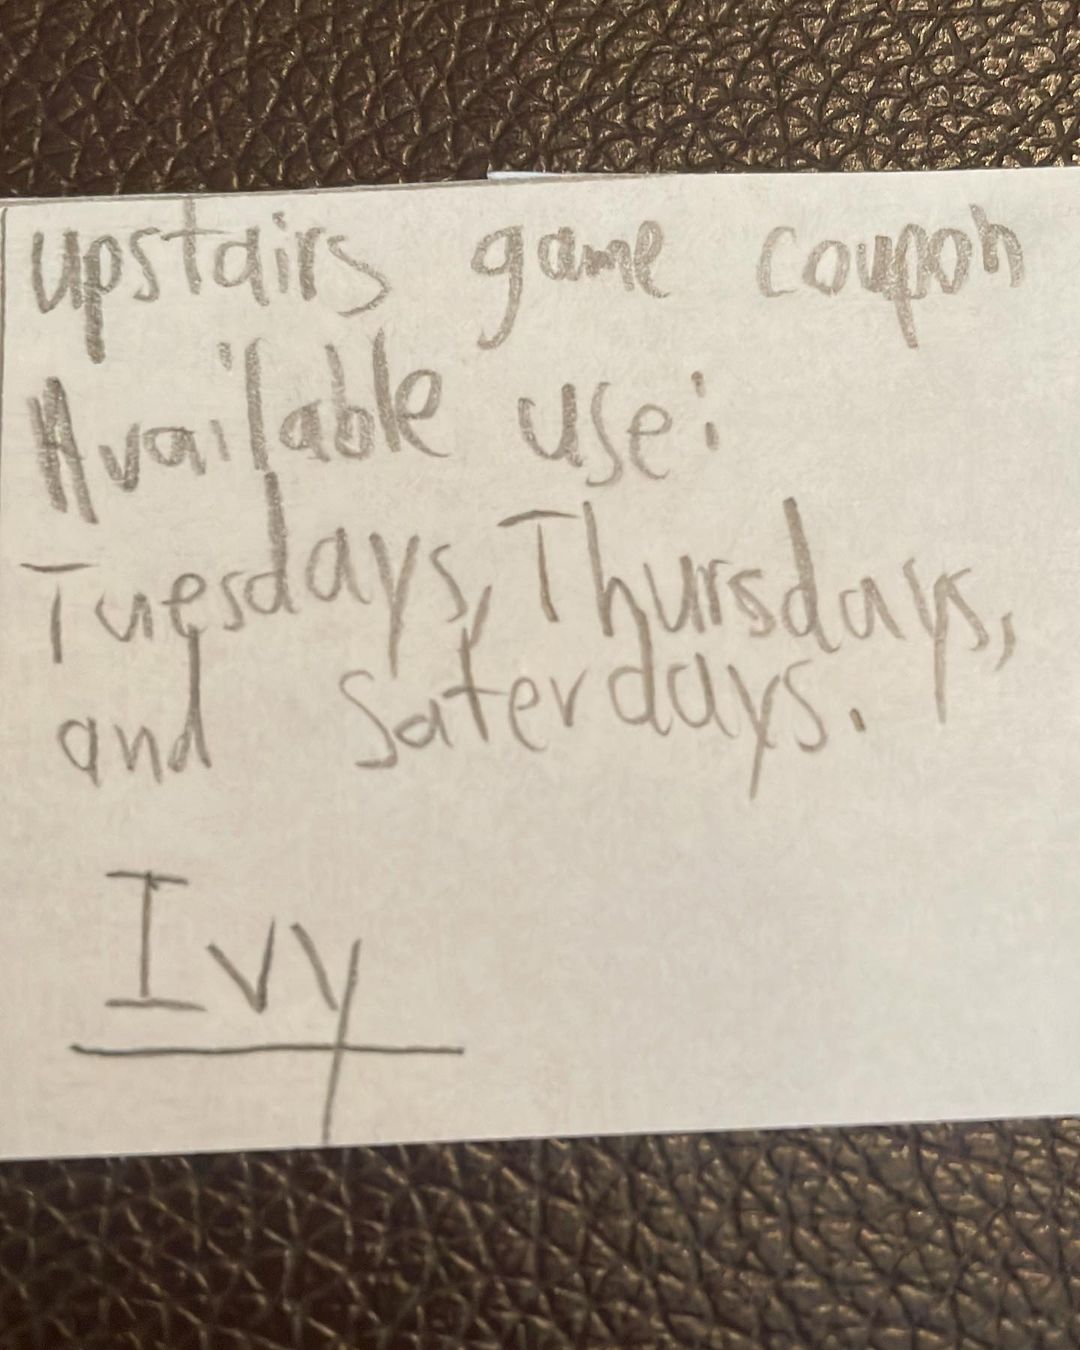 upstairs game coupon
Available use:
Tuesdays, Thursdays,
and Saterdays.
Ivy